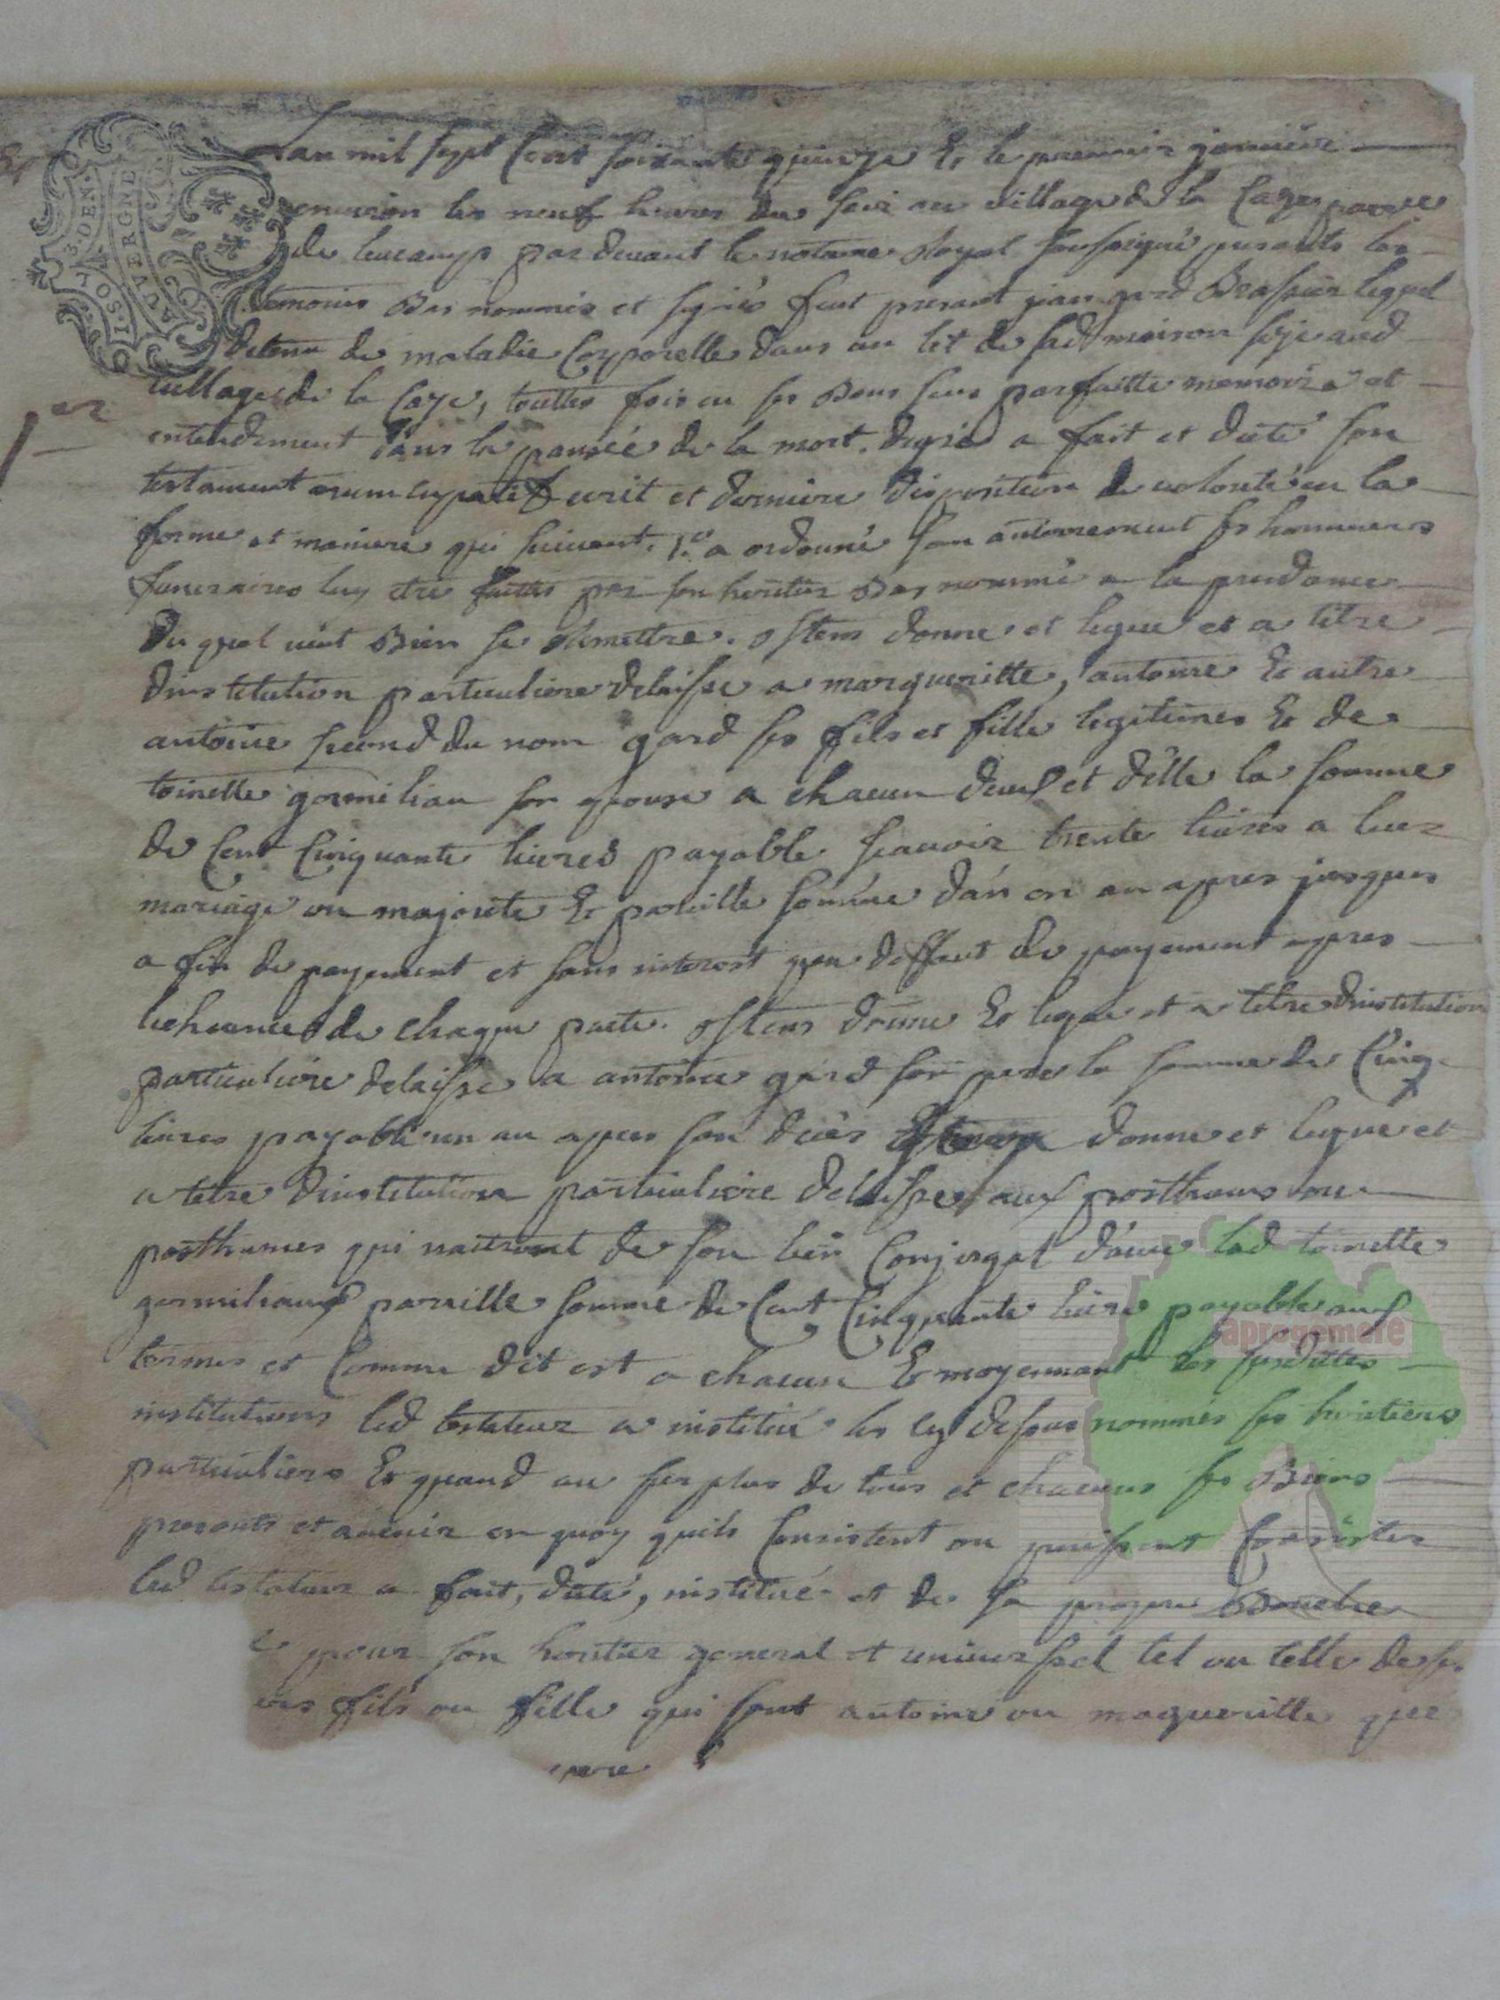 3. DEN.
1 SOL
AUVERGNE
Lan mil sept Cent soixante quinze Et le premier janvier
environ les neuf heures du soir au village de la Caze parre
de leucamp par devant le notaire Royal soussigné presants les
temoins Bas nommés et signés feut presant jean gard Brassier lequel
detenu de maladie Corporelle dans un lit de sad maison size aud
village de la Caze, touttes fois en ses Bons sens parfaitte memoire et
entendement dans la pansée de la mort. degré a fait et dicté son
testament nuncupatif ecrit et derniere disposition de volonté en la
forme et maniere qui suivent. 1.o a ordonné son anterrement ses honneurs
funeraires luy etre faittes par son heritier Bas nommé a la prudance
du quel veut Bien se remettre. Ittem donne et legue et a titre
dinstitution particuliere delaisse a margueritte, antoine Et autre
antoine second du nom gard ses fils et fille legitimes Et de
toinette gormilian son epouse a chacun deux et d'elle la somme
de Cent Cinquante livres payable scavoir trente livres a leur
mariage ou majorité Et pareille somme dan en an apres jusques
a fin de payement et sans interest quen deffaut de payement apres
lecheance de chaque pacte. Ittem donne Et legue et a titre dinstitution
particuliere delaisse a antoine gard son pere la somme de Cinq
livres payable un an apres son décés Ittem donne et legue et
a titre dinstitution particuliere delaisse aux posthumes ou
posthumes qui naitront de son lien Conjugal d'avec lad toinette
gormilian pareille somme de Cent Cinquante livres payable aux
termes et Comme dit est a chacun Et moyennant les susdittes
institutions led testateur a institué les cy dessus nommés ses heritiers
particuliers Et quand au surplus de tous et chacuns ses Biens
presants et avenir en quoy quils Consistent ou puissent Consister
led testateur a fait, dicté, institué et de sa propre Bouche
pour son heritier general et universsel tel ou telle de ses
fils ou fille qui sont antoine ou magueritte que
pere
1er
aprogemere